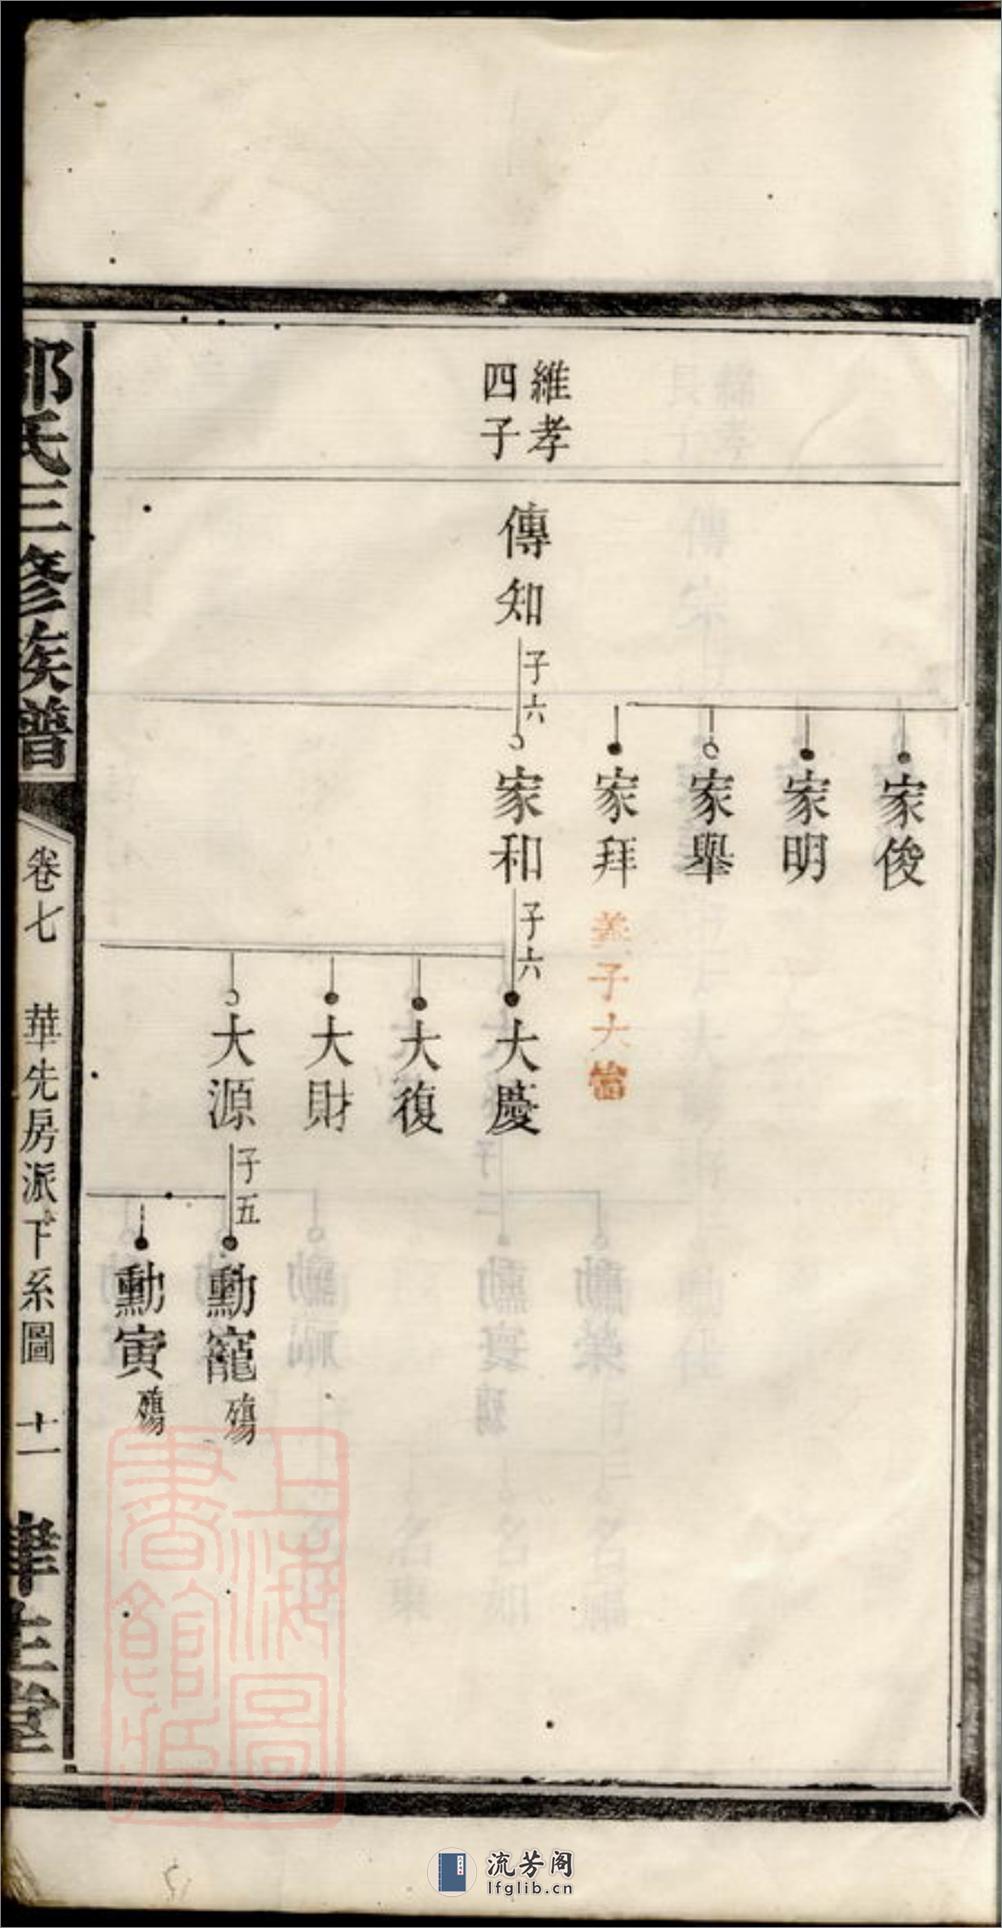 維孝
四子
傳知
子六
家俊
家明
家舉
家拜
養子大
家和
子六
大慶
大復
大財
大源
子五
勳寵 殤
勳寅 殤
氏三修族譜
卷七
華先房派下系圖
十一
堂
上海圖
書館藏
流芳阁
lfglib.cn